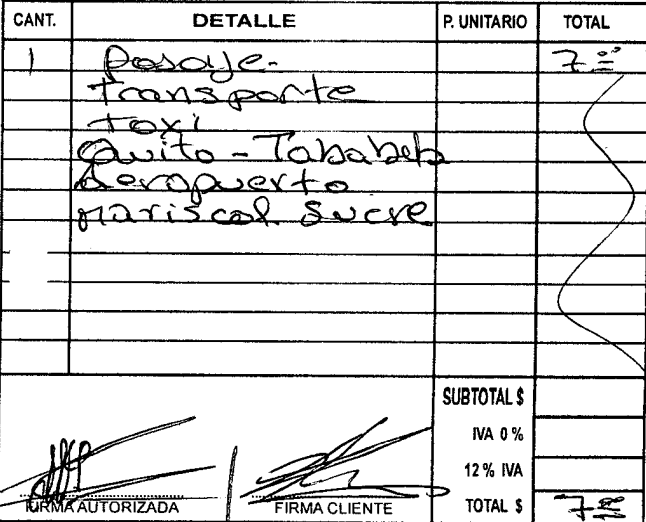 CANT. DETALLE P. UNITARIO TOTAL
1 Pasaje. 7 00
Transporte
Taxi
Quito - Tababela
Aeropuerto
Mariscal Sucre
SUBTOTAL $
IVA 0 %
12 % IVA
FIRMA AUTORIZADA FIRMA CLIENTE TOTAL $ 7 00